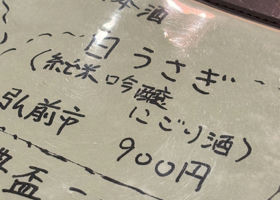 本酒
～白うさぎ～
(純米吟醸
にごり酒)
弘前市 900円
盃